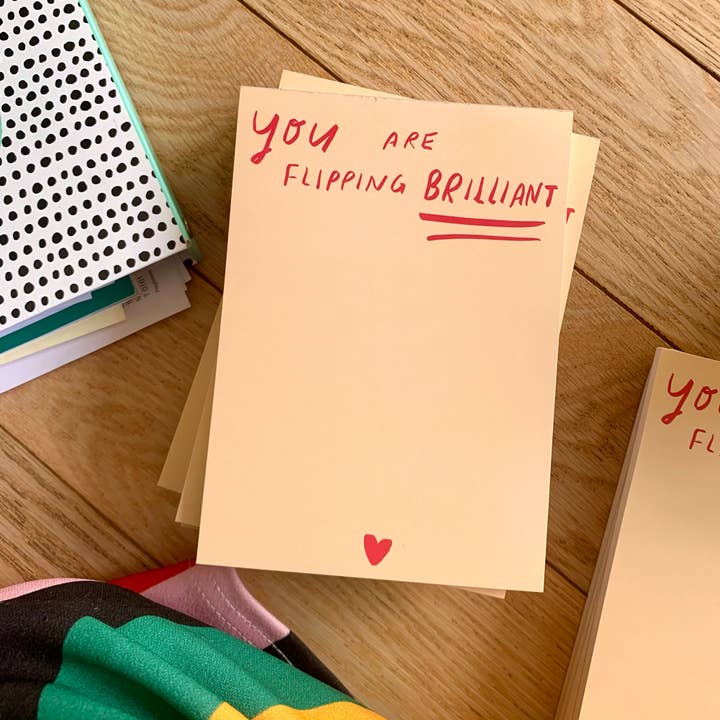 YOU ARE
FLIPPING BRILLIANT
T
YOU
FL